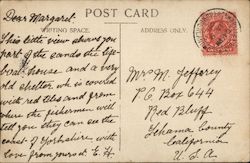 Dear Margaret.
POST CARD
WRITING SPACE.
ADDRESS ONLY.
This little view shows you
part of the sands the life
boat house. and a very
old shelter wh is covered
with red tiles and from
where the fishermen will
tell you they can see the
coast of Yorkshire, with
love from yours E. H.
Mrs M. Jefferey
P.O. Box 644
Red Bluff
Tehama County
California
U.S.A